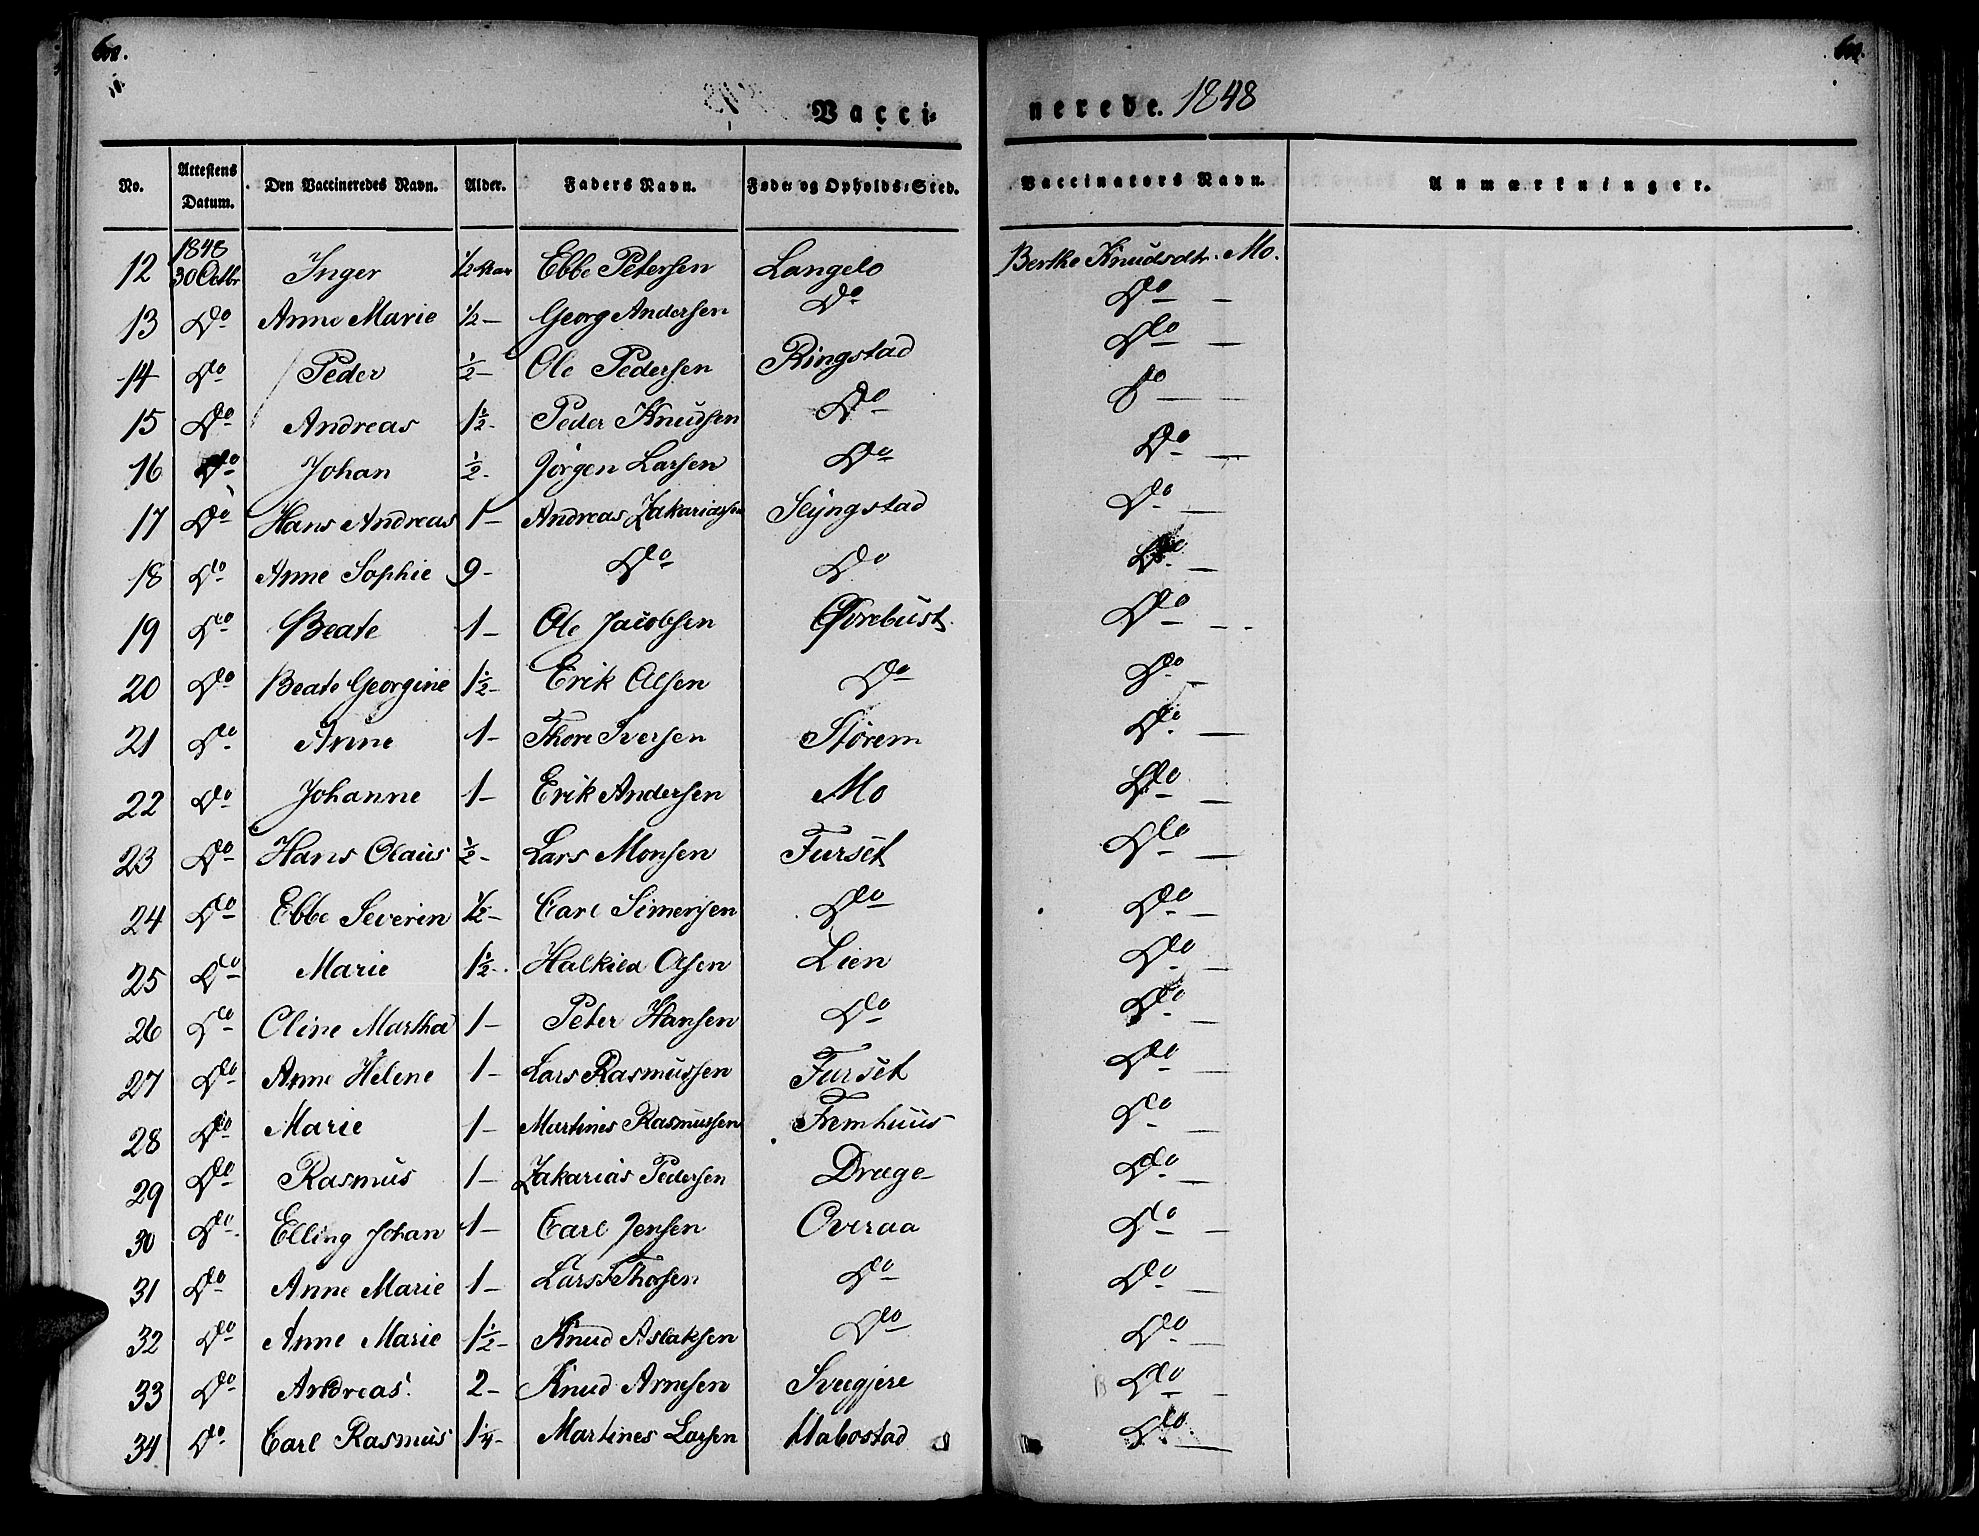 Vacci-
nerede. 1848
No. Attestens Datum. Den Vaccineredes Navn. Alder. Faders Navn. Føde- og Opholds-Sted. Vaccinators Navn. Anmærkninger.
12 1848 30 Octbr Inger 1/2 Aar Ebbe Petersen Langelo Berthe Knudsdtr. Mo.
13 Do Anne Marie 1/2 - Georg Andersen Do Do -
14 Do Peder 1/2 - Ole Pedersen Ringstad Do -
15 Do Andreas 1 1/2 - Peder Knudsen Do Do -
16 Do Johan 1/2 - Jørgen Larsen Do Do -
17 Do Hans Andreas 1 - Andreas Zakariassen Slÿngstad Do -
18 Do Anne Sophie 9 - Do Do Do -
19 Do Beate 1 - Ole Jacobsen Øvrebust Do -
20 Do Beate Georgine 1 1/2 - Erik Olsen Do Do -
21 Do Anne 1 - Thore Iversen Størem Do -
22 Do Johanne 1 - Erik Andersen Mo Do -
23 Do Hans Olaus 1/2 - Lars Monsen Furset Do -
24 Do Ebbe Severin 1/2 - Carl Simensen Do Do -
25 Do Marie 1 1/2 - Halkild Olsen Lien Do -
26 Do Oline Martha 1 - Peter Hansen Do Do -
27 Do Anne Helene 1 - Lars Rasmussen Furset Do -
28 Do Marie 1 - Martines Rasmussen Fremhuus Do -
29 Do Rasmus 1 - Zakarias Pedersen Drage Do -
30 Do Elling Johan 1 - Carl Jensen Overaa Do -
31 Do Anne Marie 1 - Lars Do Do -
32 Do Anne Marie 1 1/2 - Knud Aslaksen Do Do -
33 Do Andreas 2 - Knud Arnesen Svegjere Do -
34 Do Carl Rasmus 1 1/4 - Martines Larsen Habostad Do -